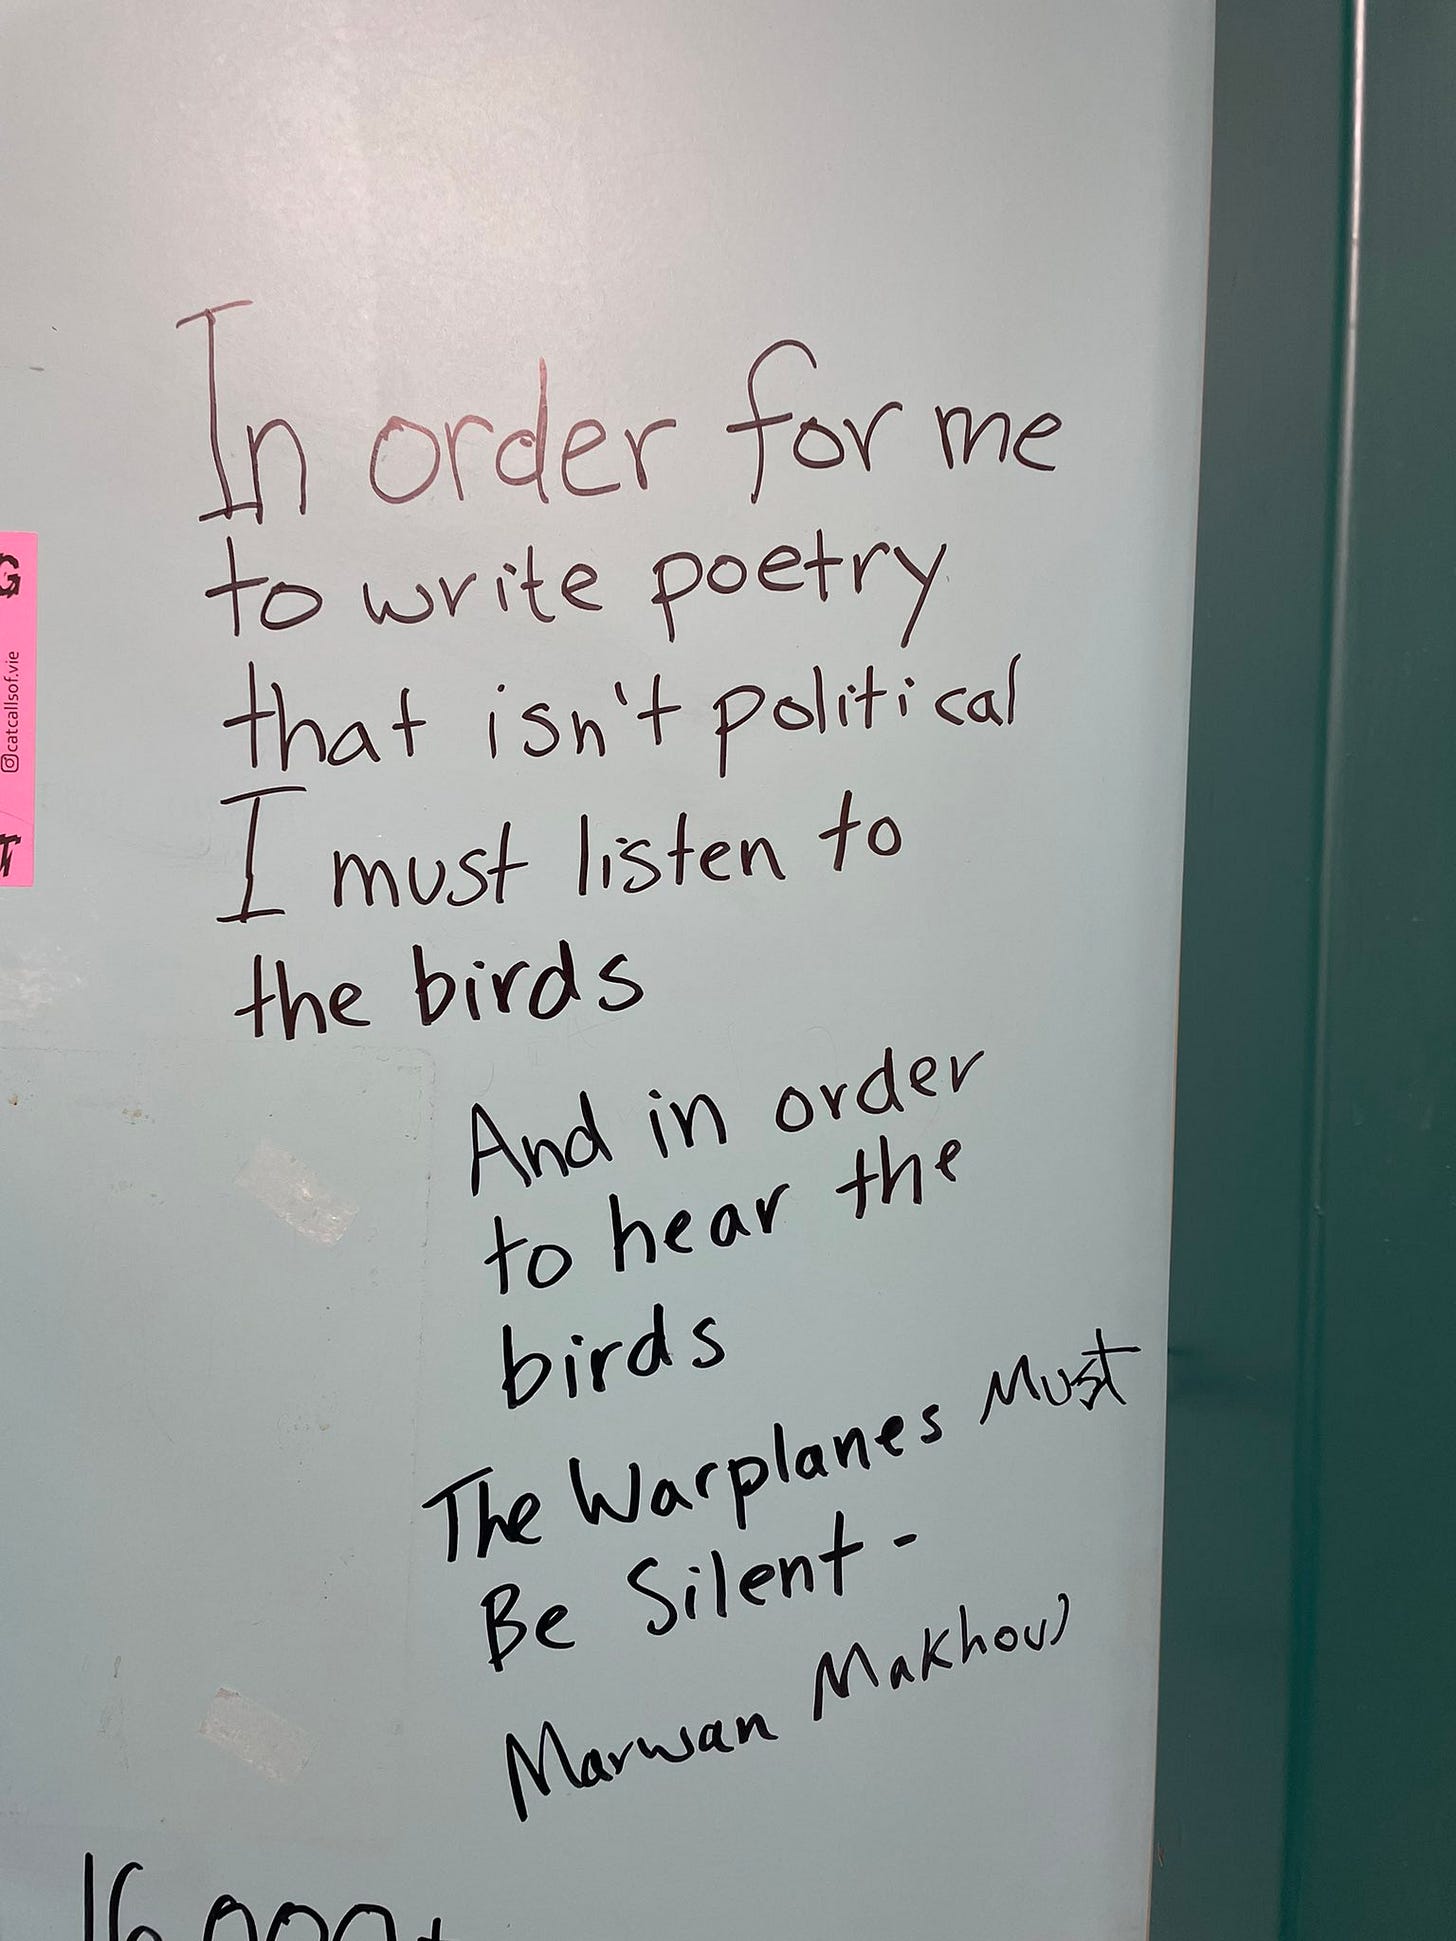 In order for me
to write poetry
that isn't political
I must listen to
the birds
And in order
to hear the
birds
The Warplanes Must
Be Silent -
Marwan Makhoul
G
@catcallsof.vie
T